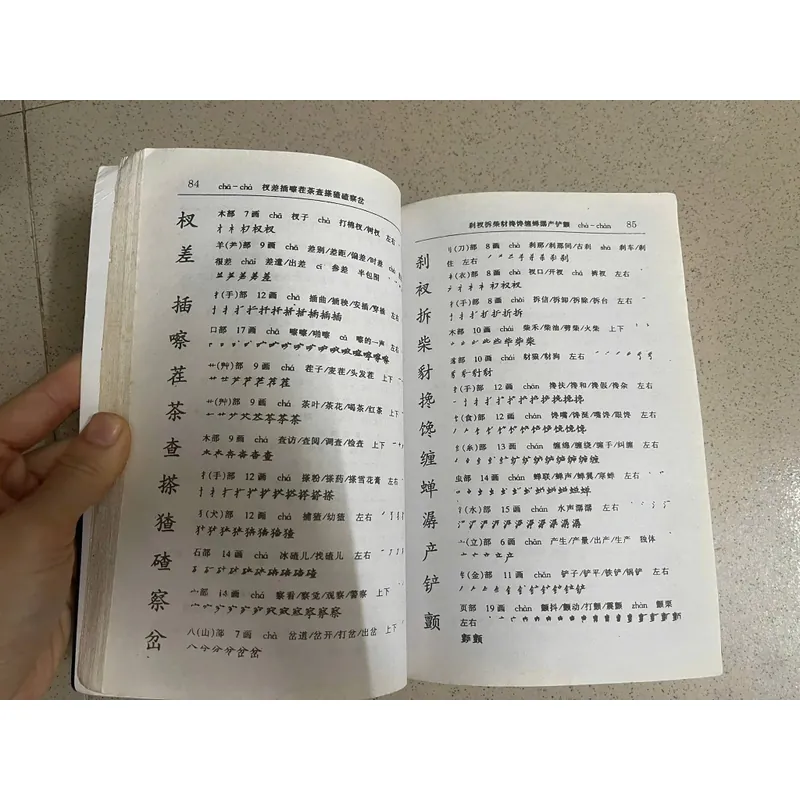 84 chā-chà 杈差插嚓茬茶查搽猹碴察岔
杈 木部 7画 chā 杈子 chà 打棉杈/树杈 左右
差 羊(⺶)部 9画 chā 差别/差距/偏差/时差 chà
很差 chāi 差遣/出差 cī 参差 半包围
插 扌(手)部 12画 chā 插曲/插秧/安插/穿插 左右
嚓 口部 17画 chā 嚓嚓/啪嚓 cā 嚓的一声 左右
茬 艹(艸)部 9画 chá 茬子/麦茬/头发茬 上下
茶 艹(艸)部 9画 chá 茶叶/茶花/喝茶/红茶 上下
查 木部 9画 chá 查访/查阅/调查/检查 上下
搽 扌(手)部 12画 chá 搽粉/搽药/搽雪花膏 左右
猹 犭(犬)部 12画 chá 捕猹/幼猹 左右
碴 石部 14画 chá 冰碴儿/找碴儿 左右
察 宀部 14画 chá 察看/察觉/观察/警察 上下
岔 八(山)部 7画 chà 岔道/岔开/打岔/出岔 上下
刹衩拆柴豺搀馋缠蝉潺产铲颤 chà-chàn 85
刹 刂(刀)部 8画 chà 刹那/刹那间/古刹 shā 刹车/刹
住 左右
衩 衤(衣)部 8画 chà 衩口/开衩 chǎ 裤衩 左右
拆 扌(手)部 8画 chāi 拆信/拆卸/拆除/拆台 左右
柴 木部 10画 chái 柴禾/柴油/劈柴/火柴 上下
豺 豸部 10画 chái 豺狼/豺狗 左右
搀 扌(手)部 12画 chān 搀扶/搀和/搀假/搀杂 左右
馋 饣(食)部 12画 chán 馋嘴/馋涎/嘴馋/眼馋 左右
缠 纟(糸)部 13画 chán 缠绵/缠绕/缠手/纠缠 左右
蝉 虫部 14画 chán 蝉联/蝉声/蝉翼/寒蝉 左右
潺 氵(水)部 15画 chán 水声潺潺 左右
产 亠(立)部 6画 chǎn 产生/产量/出产/生产 独体
铲 钅(金)部 11画 chǎn 铲子/铲平/铁铲/锅铲 左右
颤 页部 19画 chàn 颤抖/颤动/打颤/震颤 zhàn 颤栗
左右